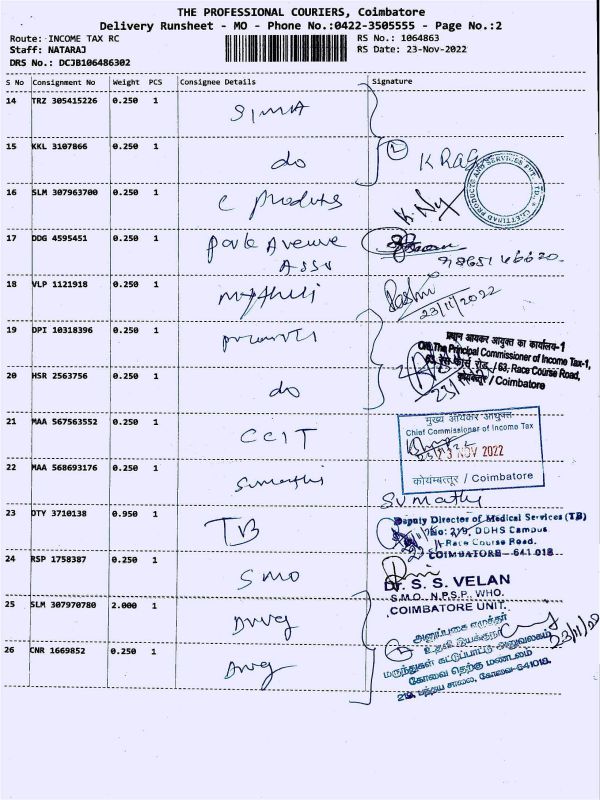 THE PROFESSIONAL COURIERS, Coimbatore
Delivery Runsheet - MO - Phone No.:0422-3505555 - Page No.:2
Route: INCOME TAX RC
RS No.: 1064863
Staff: NATARAJ
RS Date: 23-Nov-2022
DRS No.: DCJB106486302
S No Consignment No Weight PCS Consignee Details Signature
14 TRZ 305415226 0.250 1 SIMA
15 KKL 3107866 0.250 1 do
2 K RAG
CHETTINAD PRODUCTS AND SERVICES PVT. LTD.
16 SLM 307963700 0.250 1 e products
17 DDG 4595451 0.250 1 park Avenue
Assv
18 VLP 1121918 0.250 1 mythili
23/11/2022
19 DPI 10318396 0.250 1
प्रधान आयकर आयुक्त का कार्यालय-1
O/o. The Principal Commissioner of Income Tax-1,
63, रेस कोर्स रोड, / 63, Race Course Road,
कोयंबत्तूर / Coimbatore
20 HSR 2563756 0.250 1 do
21 MAA 567563552 0.250 1 CCIT
मुख्य आयकर आयुक्त
Chief Commissioner of Income Tax
23 NOV 2022
कोयंबत्तूर / Coimbatore
22 MAA 568693176 0.250 1 Sumathi
Sumathy
23 OTY 3710138 0.950 1 TB
Deputy Director of Medical Services (TB)
No: 219, DDHS Campus
Race Course Road.
COIMBATORE - 641 018
24 RSP 1758387 0.250 1 SMO
Dr. S. S. VELAN
S.M.O. N.P.S.P. WHO.
COIMBATORE UNIT.
25 SLM 307970780 2.000 1 Drug
23/11/22
26 CNR 1669852 0.250 1 Drug
உதவி இயக்குநர்
மருந்துகள் கட்டுப்பாட்டு அலுவலகம்
கோவை தெற்கு மண்டலம்
219, பந்தய சாலை, கோவை-641018.